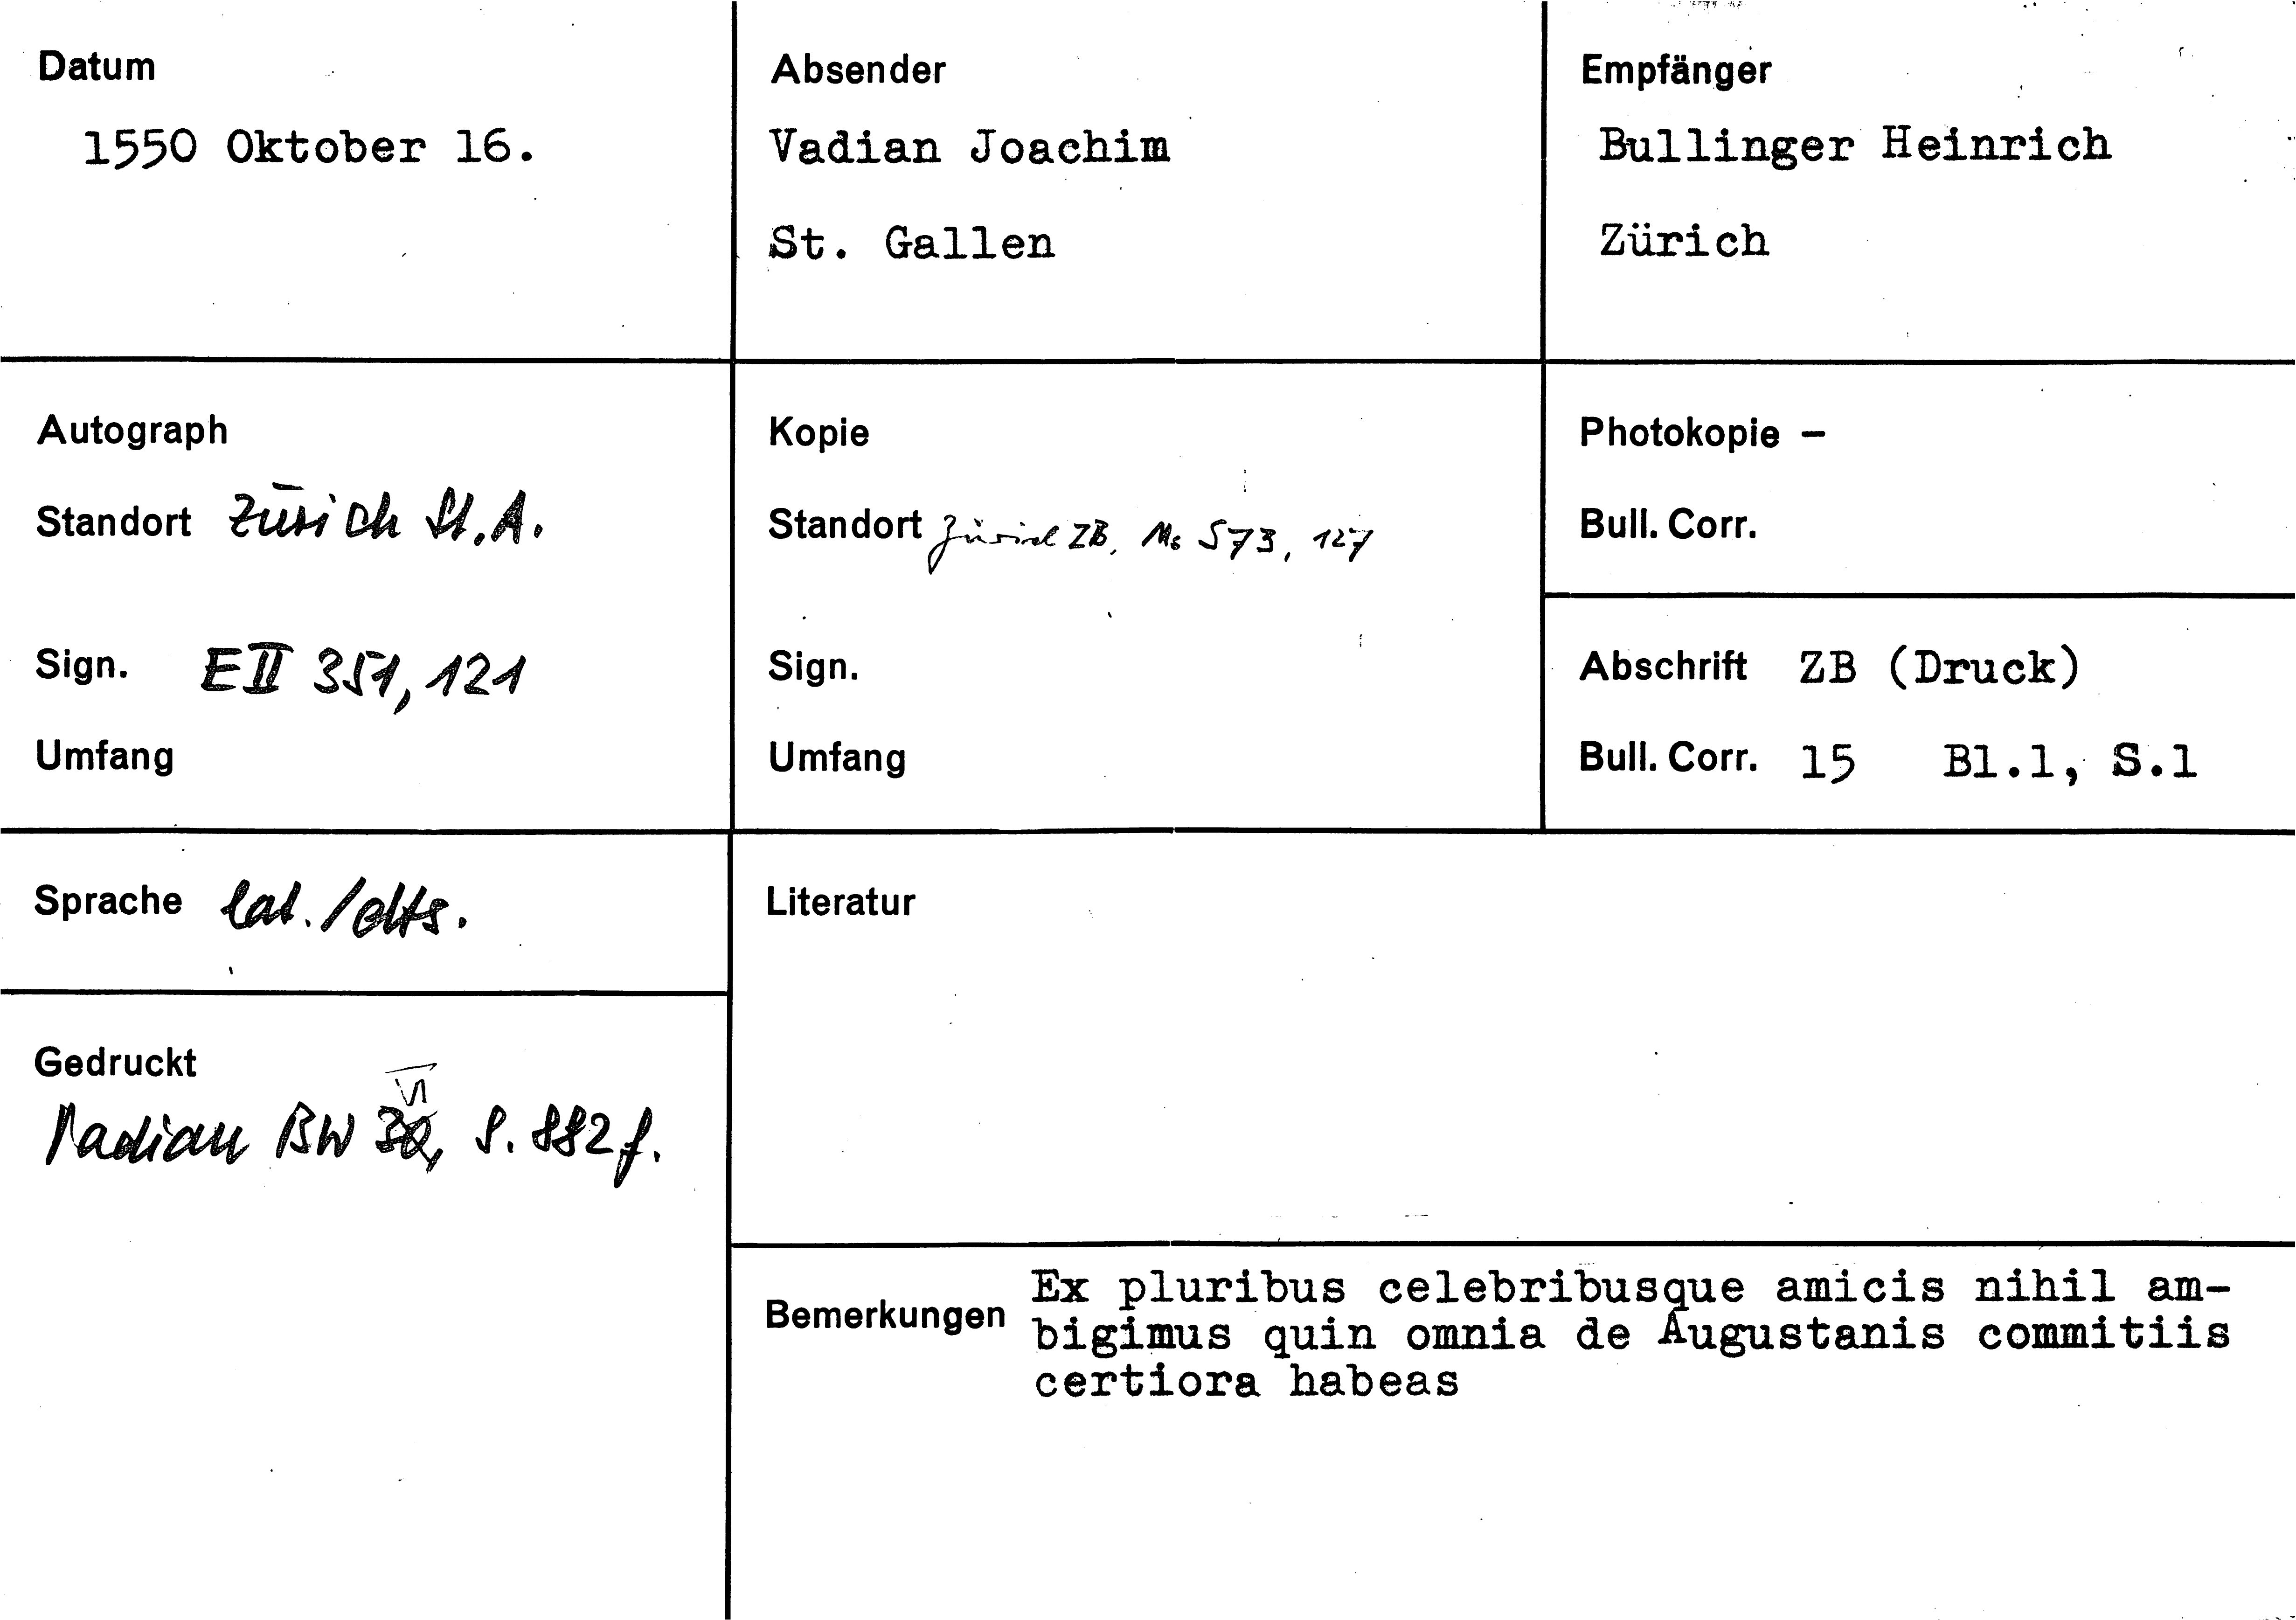 Datum
1550 Oktober 16.
Absender
Vadian Joachim
St. Gallen
Empfänger
Bullinger Heinrich
Zürich
Autograph
Standort Zürich St.A.
Sign. E II 351, 121
Umfang
Kopie
Standort Zürich ZB, Ms S 73, 127
Sign.
Umfang
Photokopie –
Bull. Corr.
Abschrift ZB (Druck)
Bull. Corr. 15 Bl.1, S.1
Sprache lat./dts.
Literatur
Gedruckt
VI
Vadian BW 30, S. 882 f.
Bemerkungen
Ex pluribus celebribusque amicis nihil am-
bigimus quin omnia de Augustanis commitiis
certiora habeas